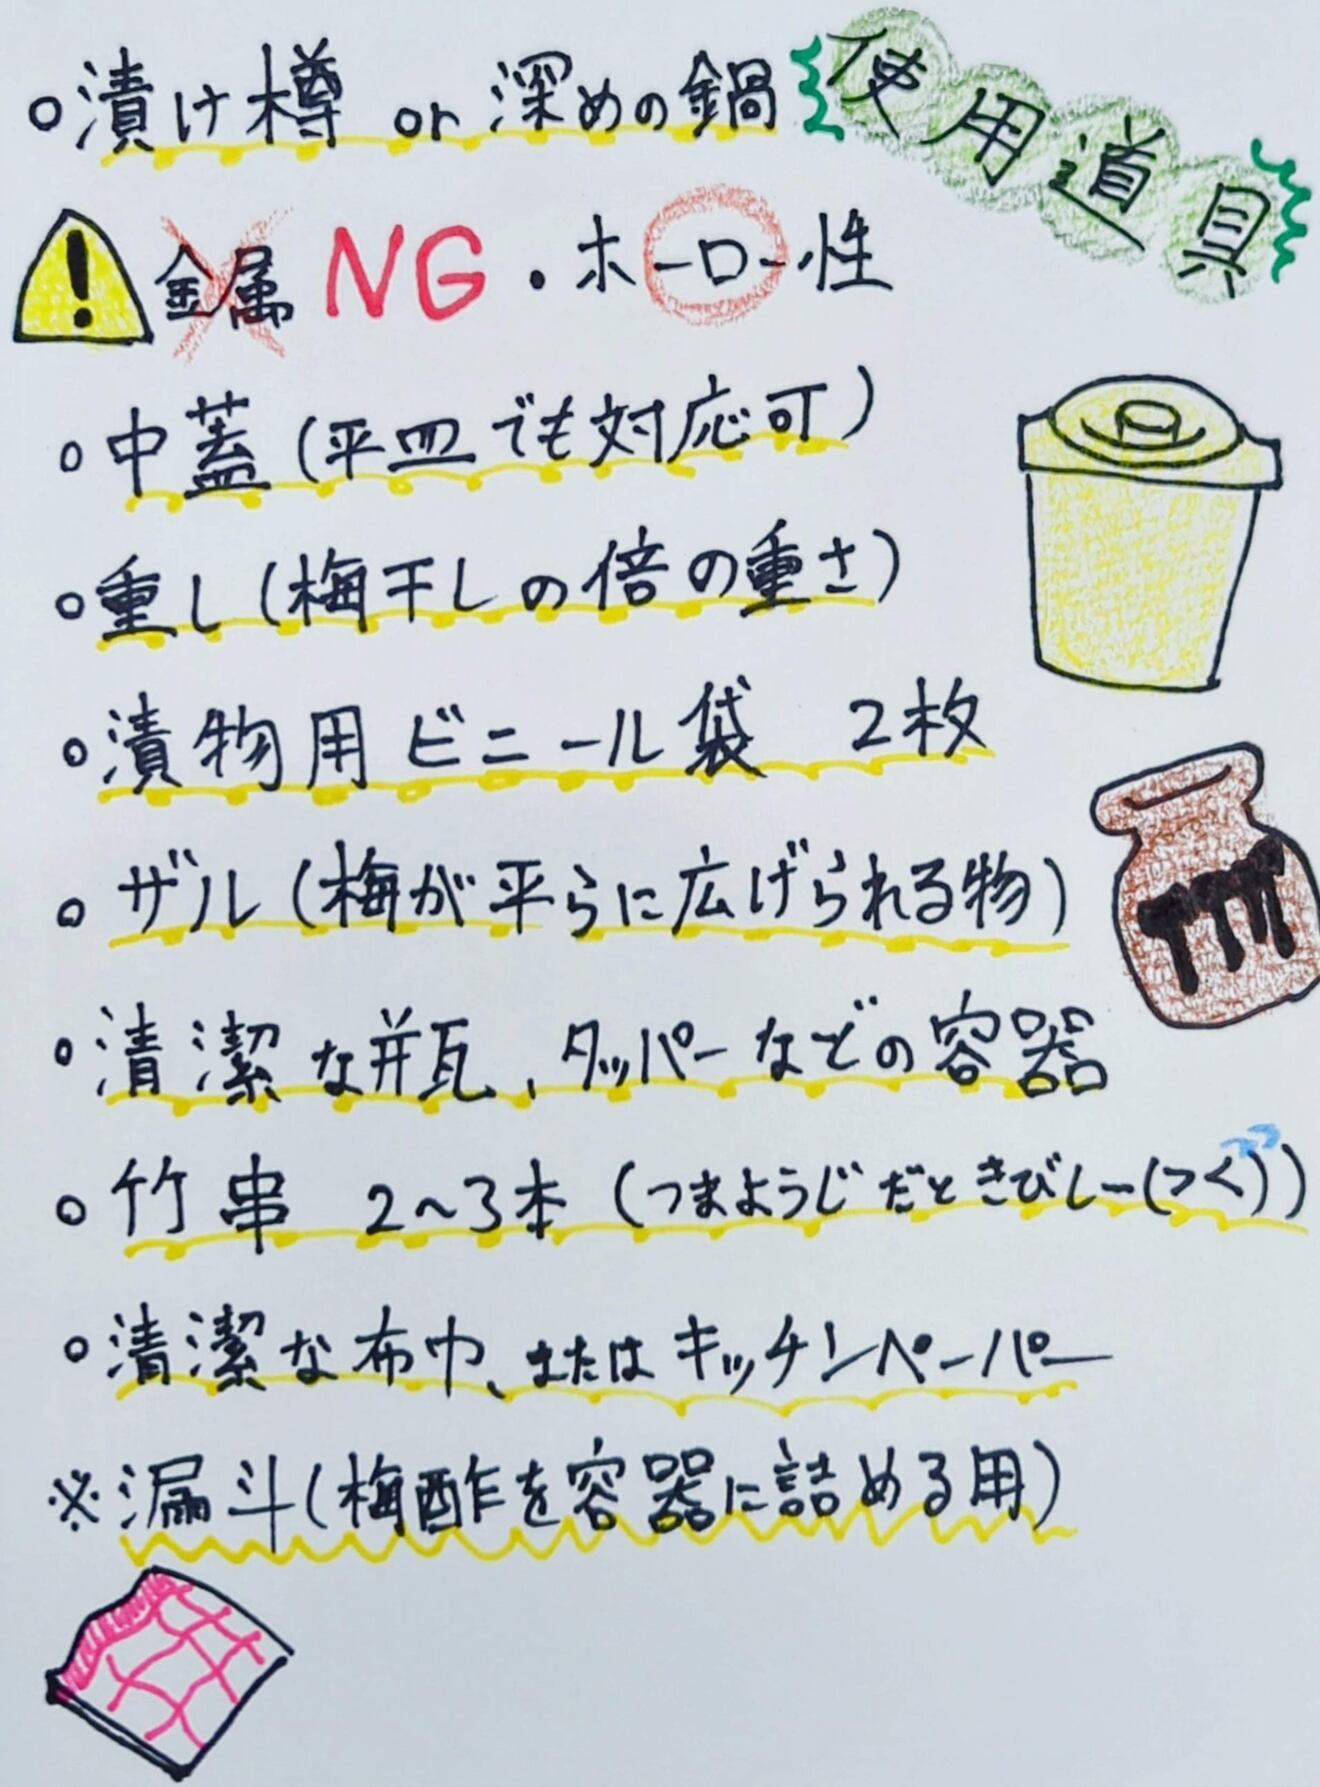 使用道具
○漬け樽 or 深めの鍋
金属 NG・ホーロー性
○中蓋(平皿でも対応可)
○重し(梅干しの倍の重さ)
○漬物用ビニール袋 2枚
○ザル(梅が平らに広げられる物)
○清潔な瓶、タッパーなどの容器
○竹串 2~3本(つまようじだときびしー(つく))
○清潔な布巾、またはキッチンペーパー
※漏斗(梅酢を容器に詰める用)